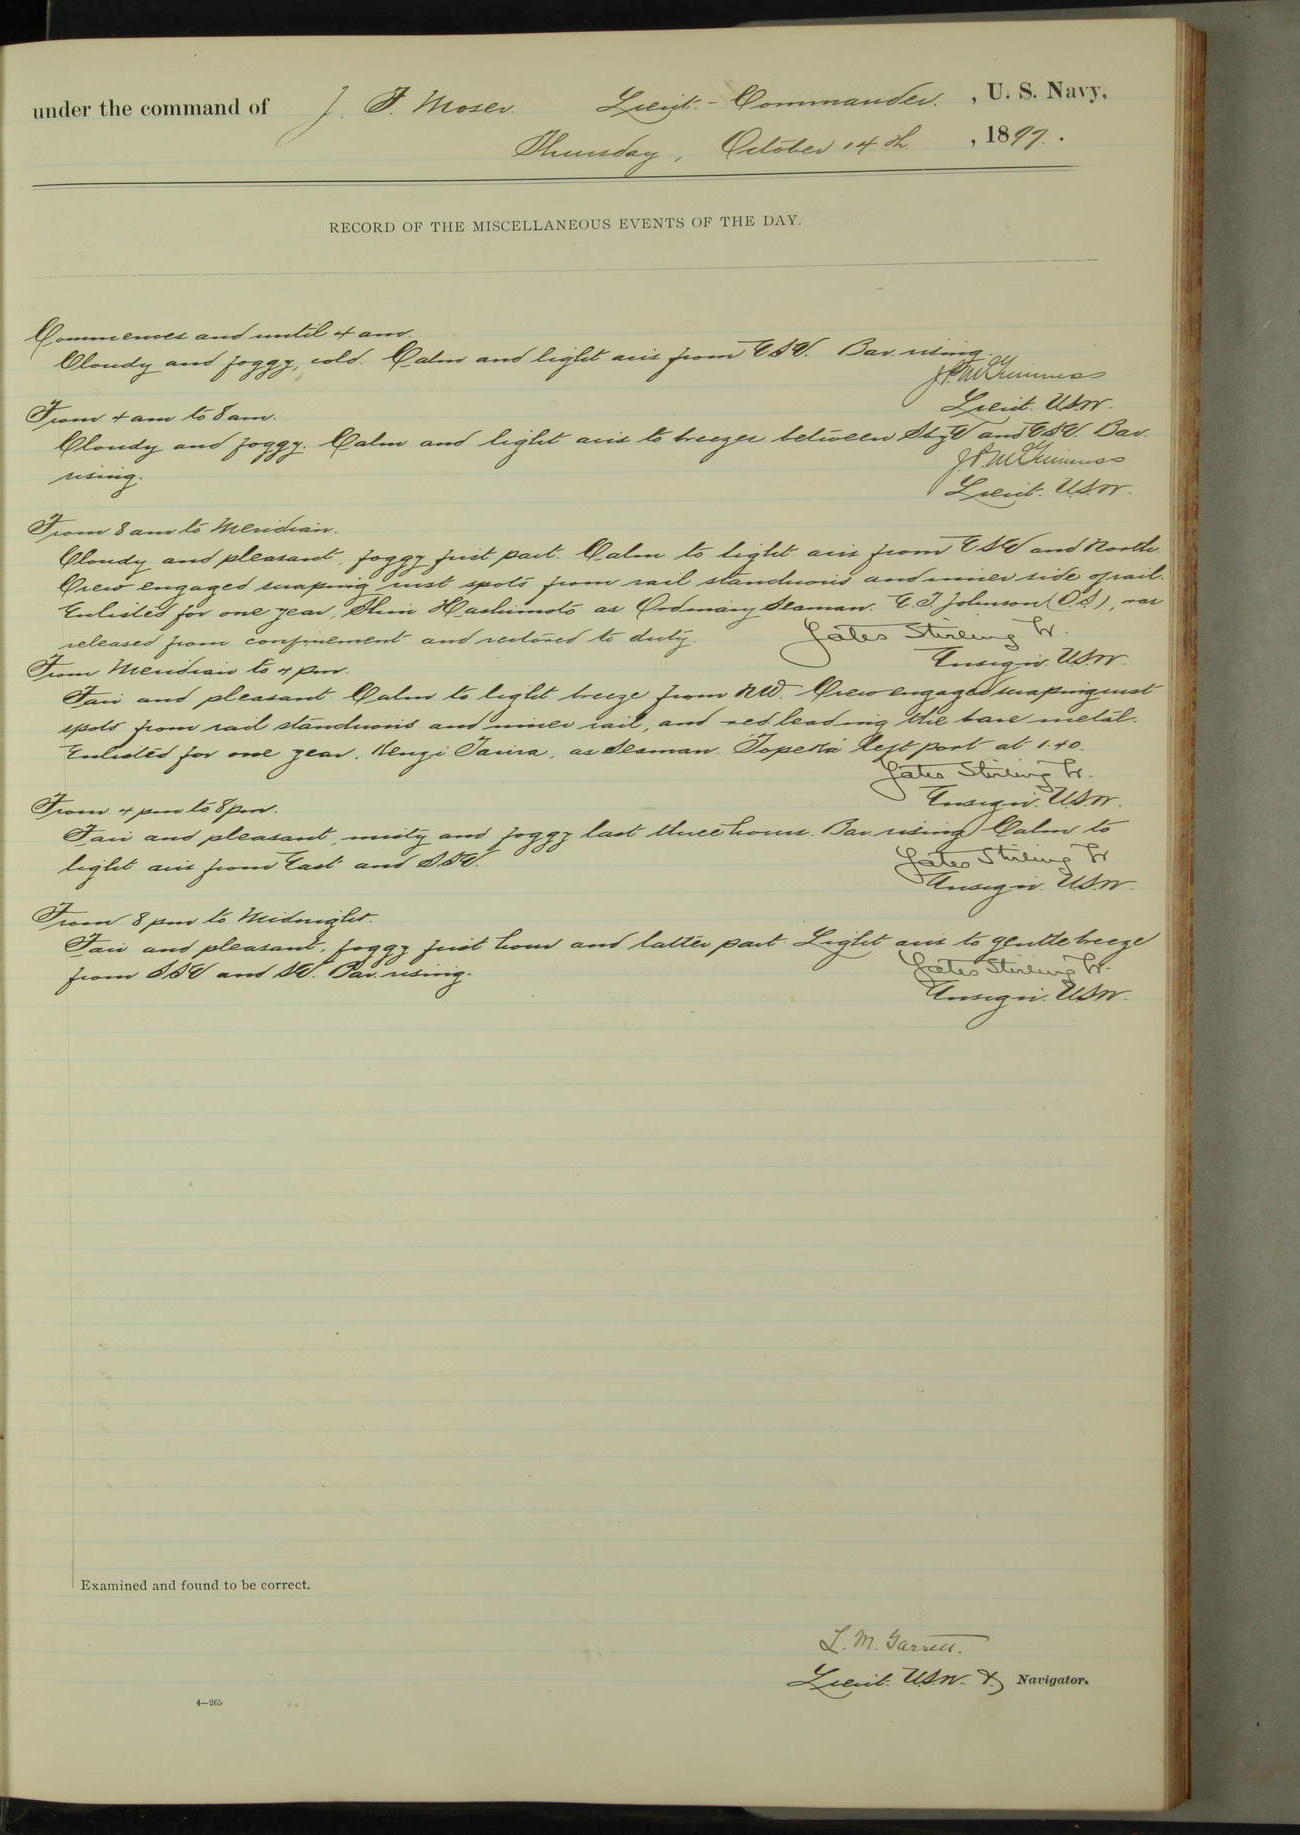 under the command of J. F. Moser. Lieut.-Commander. , U. S. Navy,
Thursday, October 14th , 1897.
RECORD OF THE MISCELLANEOUS EVENTS OF THE DAY.
Commences and until 4 am.
Cloudy and foggy, cold. Calm and light airs from ESE. Bar. rising.
J. P. McGuinness
Lieut. U.S.N.
From 4 am to 8 am.
Cloudy and foggy. Calm and light airs to breezes between SbyE and ESE. Bar.
rising.
J. P. McGuinness
Lieut. U.S.N.
From 8 am to Meridian.
Cloudy and pleasant, foggy first part. Calm to light airs from ESE and North.
Crew engaged scraping rust spots from rail stanchions and inner side of rail.
Enlisted for one year, Shin Hashimoto as Ordinary Seaman. E. J. Johnson (O.S.), was
released from confinement and restored to duty.
Yates Stirling Jr.
Ensign. U.S.N.
From Meridian to 4 pm.
Fair and pleasant. Calm to light breeze from NW. Crew engaged scraping rust
spots from rail stanchions and inner rail, and red leading the bare metal.
Enlisted for one year, Kenzi as Seaman. Topeka left port at 1.40.
Yates Stirling Jr.
Ensign. U.S.N.
From 4 pm to 8 pm.
Fair and pleasant, misty and foggy last three hours. Bar. rising. Calm to
light airs from East and SSE.
Yates Stirling Jr
Ensign. U.S.N.
From 8 pm to Midnight.
Fair and pleasant, foggy first hour and latter part. Light airs to gentle breeze
from SSE and SE. Bar. rising.
Yates Stirling Jr.
Ensign. U.S.N.
Examined and found to be correct.
L. M. Garrett.
Lieut. U.S.N. & Navigator.
4—265